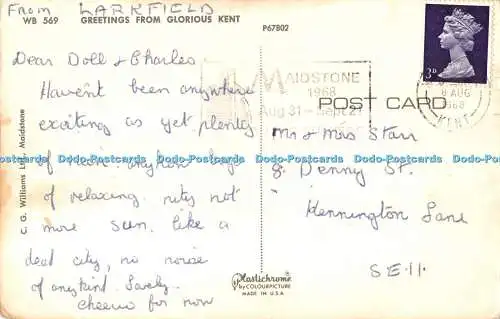 From LARKFIELD
WB 569 GREETINGS FROM GLORIOUS KENT P67802
Dear Doll & Charles
Havent been anywhere
exciting as yet plenty
of rain. anyhow
of relaxing. not
more sun. like a
dead city, no noise
of any kind. Lovely.
cheerio for now
C. G. Williams Ltd., Maidstone
Plastichrome
by COLOURPICTURE
MADE IN U.S.A.
MAIDSTONE
1968
Aug 31 - Sept 21
POST CARD
3D
8 AUG
1968
KENT
Mr & Mrs Starr
8. Denny St.
Kennington Lane
S.E.11.
Dodo-Postcards Dodo-Postcards Dodo-Postcards Dodo-Postcards Dodo-Postcards Dodo-Postcards